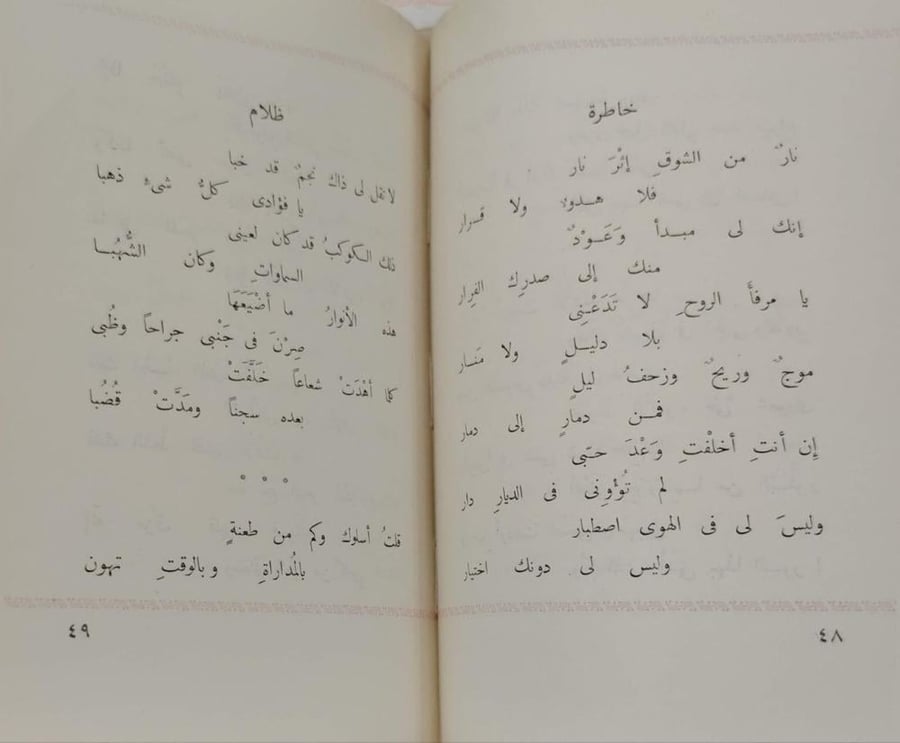 خاطرة
نارٌ من الشوقِ إثْرَ نار
فلا هدوءٌ ولا قرار
إنك لى مبدأ وَعَوْدٌ
منك إلى صدركِ الفِرار
يا مرفأَ الروحِ لا تَدَعْنِى
بلا دليلٍ ولا مَنار
موجٌ وريحٌ وزحفُ ليلٍ
فمن دمارٍ إلى دمار
إن أنتِ أخلفْتِ وَعْدَ حبّى
لم تُؤْوِنى فى الديارِ دار
وليسَ لى فى الهوى اصطبار
وليس لى دونك اختيار
٤٨
ظلام
لا تقل لى ذاك نجمٌ قد خبا
يا فؤادى كلُّ شىءٍ ذهبا
ذلك الكوكبُ قد كان لعينى
السماواتِ وكان الشُّهُبا
هذه الأنوارُ ما أضْيَعَهَا
صِرْنَ فى جَنْبى جراحاً وظُبى
كلما أهْدَتْ شعاعاً خَلَّفَتْ
بعده سجناً ومَدَّتْ قُضُبا
° ° °
قلتُ أسلوك وكم من طعنةٍ
بالمُداراةِ وبالوقتِ تهون
٤٩